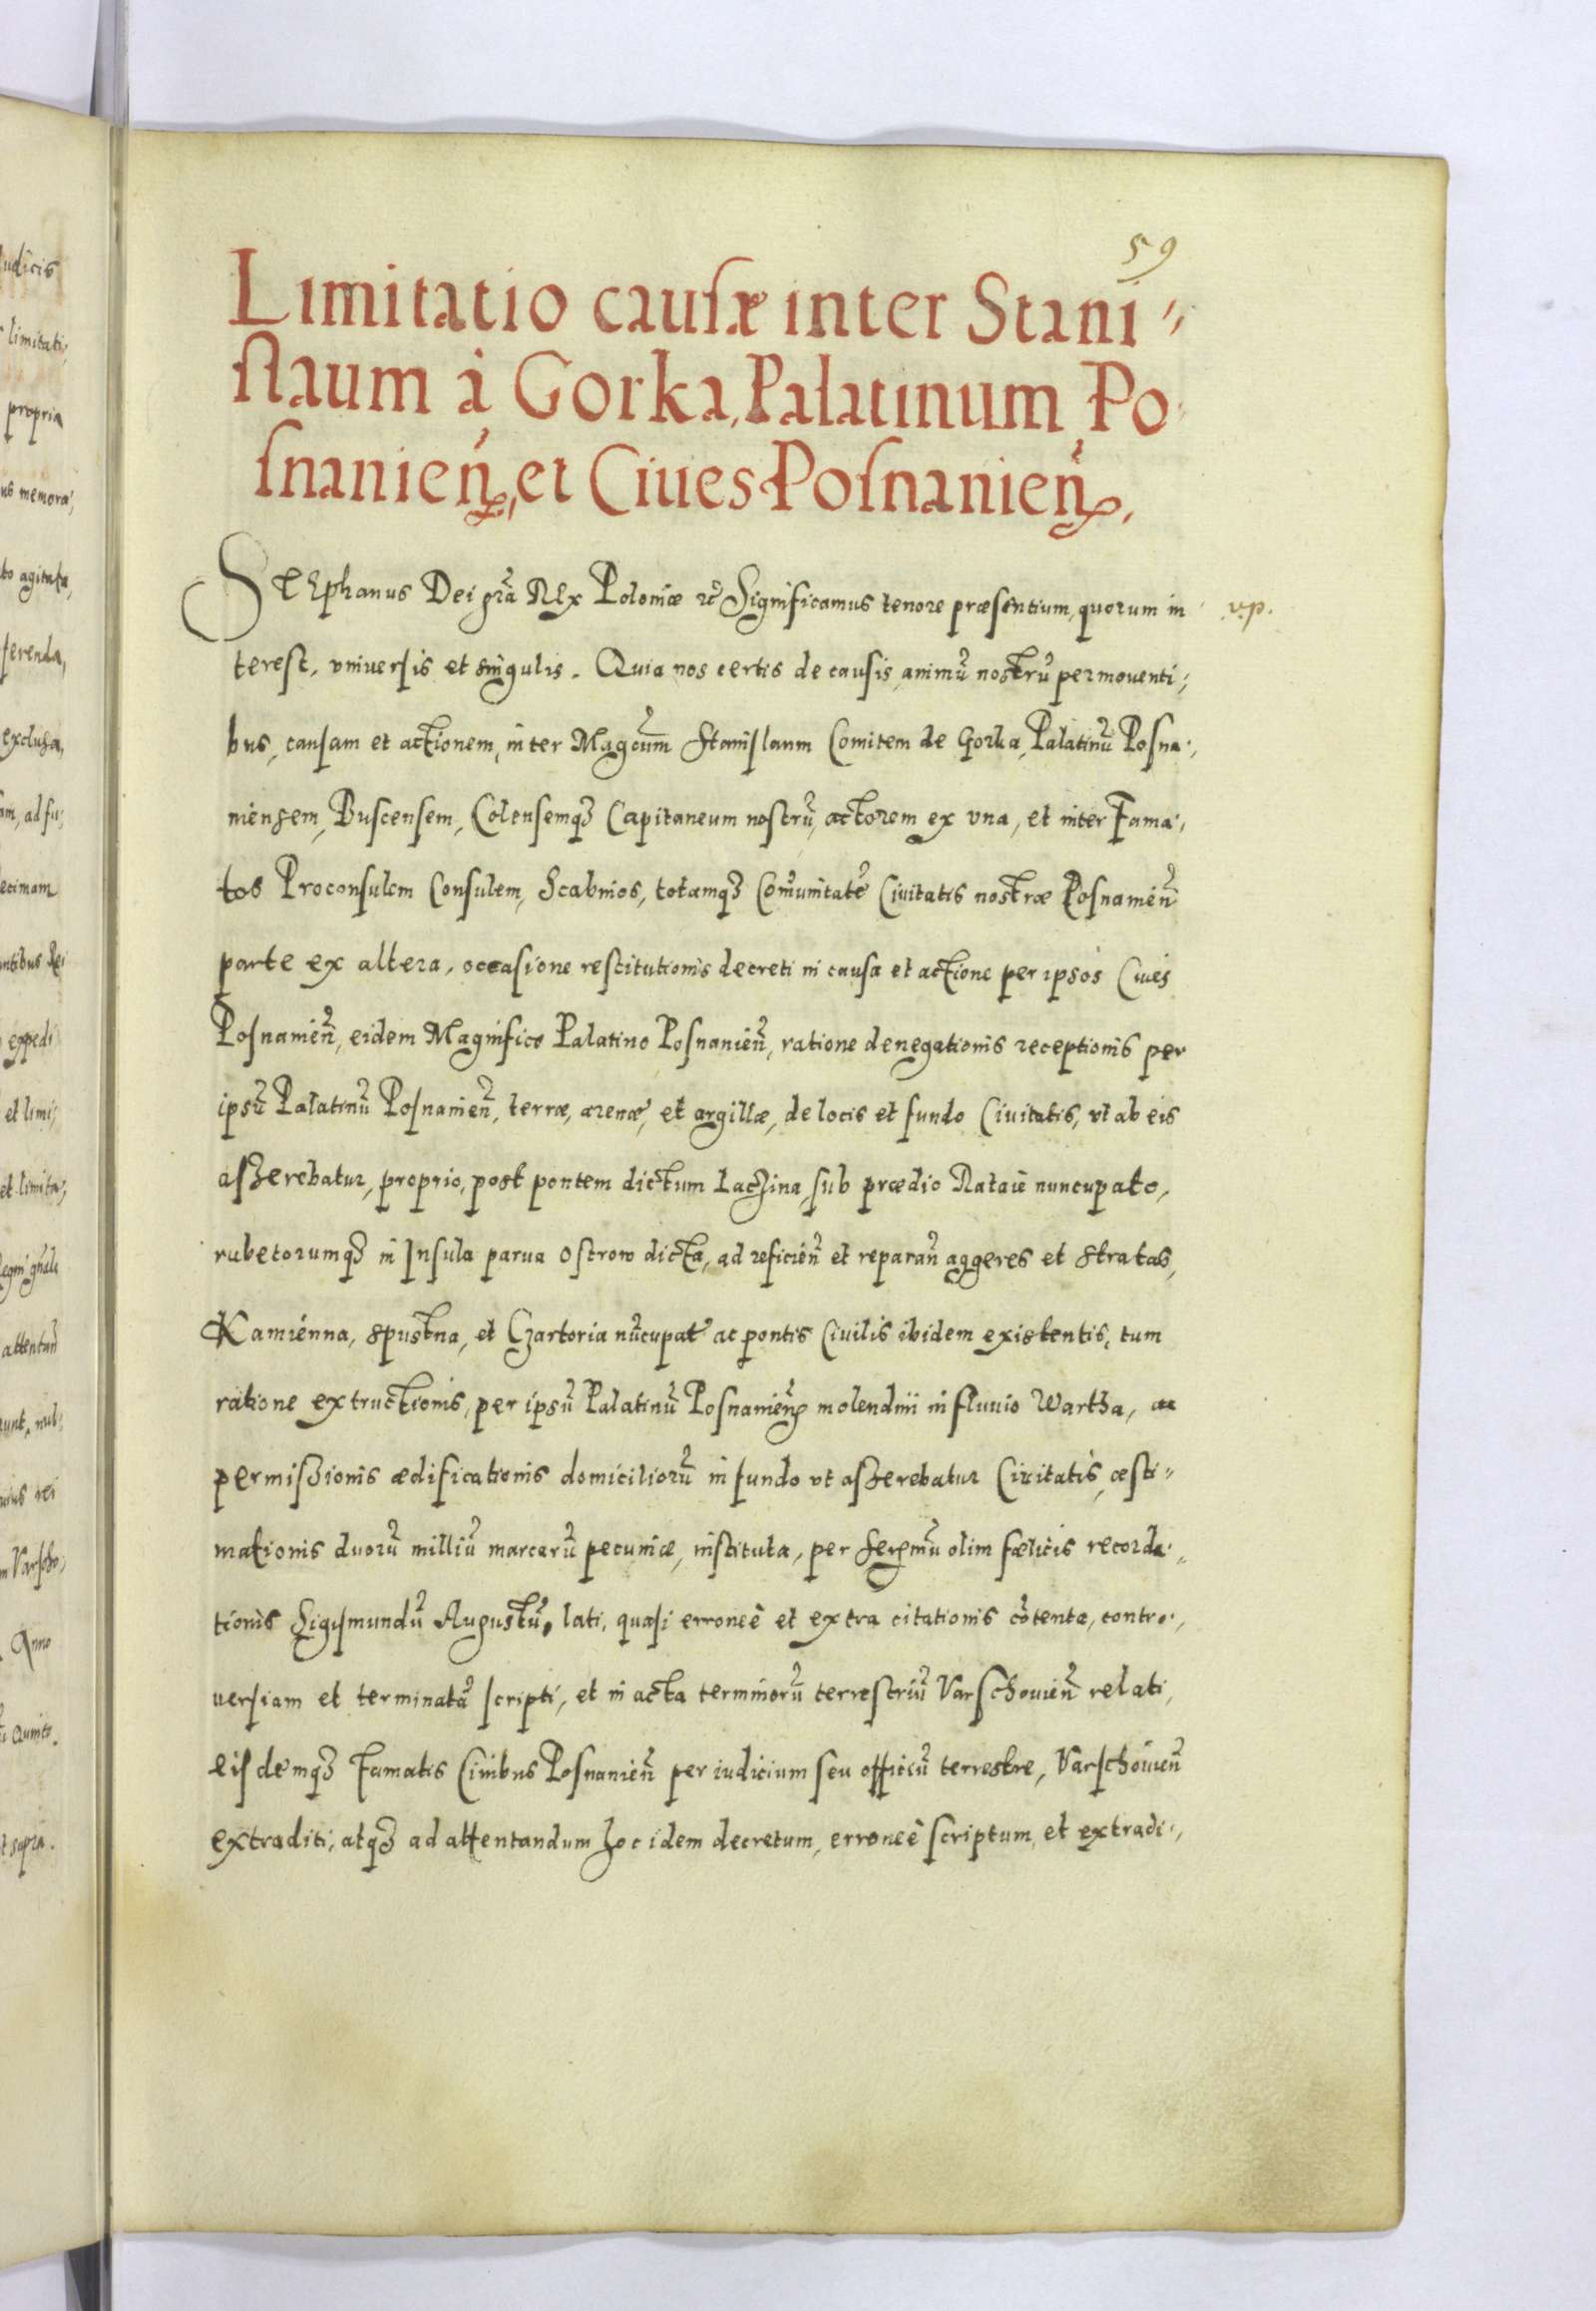 59
Limitatio causæ inter Stani〃
slaum à Gorka, Palatinum Po
snanieñ, et Ciues Posnanieñ,
STEphanus Dei grã REx Poloniæ ꝛc̃ Significamus tenore præsentium, quorum in
vp.
terest, vniuersis et singulis. Quia nos certis de causis animũ nostrũ permouenti;
bus, causam et actionem, inter Magcũm Stanislaum Comitem de Gorka, Palatinũ Posna;
niensem, Buscensem, Colensemqꝫ Capitaneum nostrũ, actorem ex vna, et inter Fama,
tos Proconsulem Consulem, Scabinos, totamqꝫ Com̃unitatẽ Ciuitatis nostræ Posnanieñ
parte ex altera, occasione restitutionis decreti in causa et actione per ipsos Ciues
Posnanieñ, eidem Magnifico Palatino Posnanieñ, ratione denegationis receptionis per
ipsũ Palatinũ Posnanieñ, terræ, arenæ, et argillæ, de locis et fundo Ciuitatis, vt ab eis
asserebatur, proprio, post pontem dictum Laczina, sub prædio Rataie nuncupato,
rubetorumqꝫ in Insula parua Ostrow dicta, ad reficieñ et reparañ aggeres et stratas,
Kamienna, spustna, et Czartoria nũcupat̃ ac pontis Ciuilis ibidem existentis, tum
ratione extructionis, per ipsũ Palatinũ Posnanieñ molendini in fluuio Wartha, ac
permissionis ædificationis domiciliorũ in fundo vt asserebatur Ciuitatis, æsti〃
mationis duorũ milliũ marcarũ pecuniæ, instituta, per Serẽmũ olim fælicis recorda,
tionis Sigismundũ Augustũ, lati, quasi erroneè et extra citationis cõtenta, contro,
uersiam et terminatã scripti, et in acta terminorũ terrestriũ Varschouieñ relati,
eisdemqꝫ Famatis Ciuibus Posnanieñ per iudicium seu officiũ terrestre, Varschouieñ
extraditi, atqꝫ ad attentandum hoc idem decretum, erroneè scriptum, et extradi,